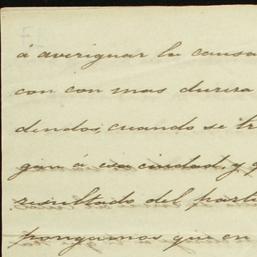 á averiguar la causa
con con mas dureza
didos, cuando se tr
gan á esa ciudad, y q
resultado del parti
pongamos que en